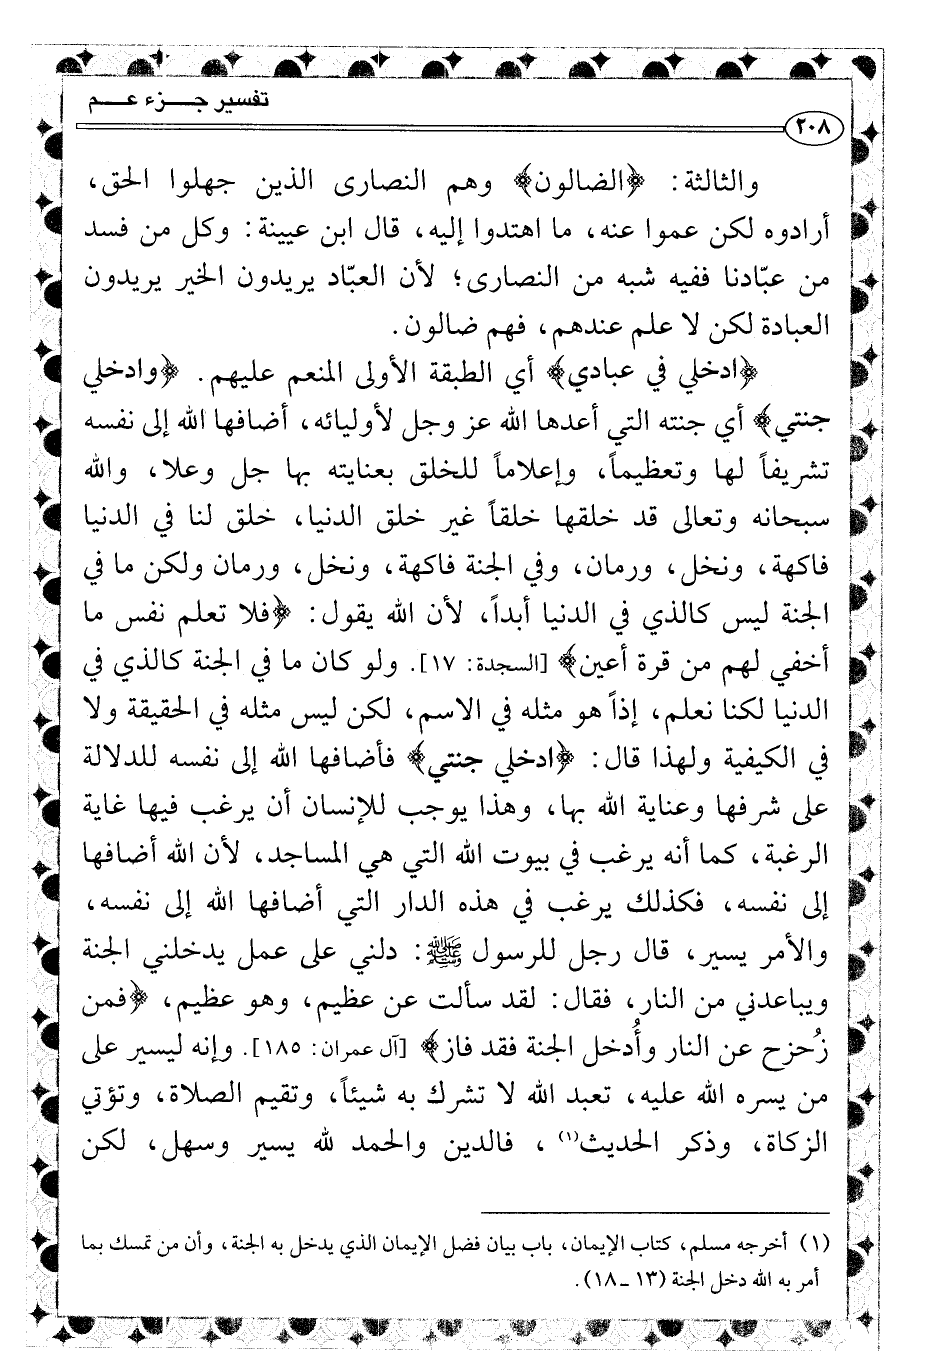 تفسير جـــزء عـــم
٢٠٨
والثالثة: ﴿الضالون﴾ وهم النصارى الذين جهلوا الحق،
أرادوه لكن عموا عنه، ما اهتدوا إليه، قال ابن عيينة: وكل من فسد
من عبّادنا ففيه شبه من النصارى؛ لأن العبّاد يريدون الخير يريدون
العبادة لكن لا علم عندهم، فهم ضالون.
﴿ادخلي في عبادي﴾ أي الطبقة الأولى المنعم عليهم. ﴿وادخلي
جنتي﴾ أي جنته التي أعدها الله عز وجل لأوليائه، أضافها الله إلى نفسه
تشريفاً لها وتعظيماً، وإعلاماً للخلق بعنايته بها جل وعلا، والله
سبحانه وتعالى قد خلقها خلقاً غير خلق الدنيا، خلق لنا في الدنيا
فاكهة، ونخل، ورمان، وفي الجنة فاكهة، ونخل، ورمان ولكن ما في
الجنة ليس كالذي في الدنيا أبداً، لأن الله يقول: ﴿فلا تعلم نفس ما
أخفي لهم من قرة أعين﴾ [السجدة: ١٧]. ولو كان ما في الجنة كالذي في
الدنيا لكنا نعلم، إذاً هو مثله في الاسم، لكن ليس مثله في الحقيقة ولا
في الكيفية ولهذا قال: ﴿ادخلي جنتي﴾ فأضافها الله إلى نفسه للدلالة
على شرفها وعناية الله بها، وهذا يوجب للإنسان أن يرغب فيها غاية
الرغبة، كما أنه يرغب في بيوت الله التي هي المساجد، لأن الله أضافها
إلى نفسه، فكذلك يرغب في هذه الدار التي أضافها الله إلى نفسه،
والأمر يسير، قال رجل للرسول ﷺ: دلني على عمل يدخلني الجنة
ويباعدني من النار، فقال: لقد سألت عن عظيم، وهو عظيم، ﴿فمن
زُحزح عن النار وأُدخل الجنة فقد فاز﴾ [آل عمران: ١٨٥]. وإنه ليسير على
من يسره الله عليه، تعبد الله لا تشرك به شيئاً، وتقيم الصلاة، وتؤتي
الزكاة، وذكر الحديث(١)، فالدين والحمد لله يسير وسهل، لكن
(١) أخرجه مسلم، كتاب الإيمان، باب بيان فضل الإيمان الذي يدخل به الجنة، وأن من تمسك بما
أمر به الله دخل الجنة (١٣ _ ١٨).